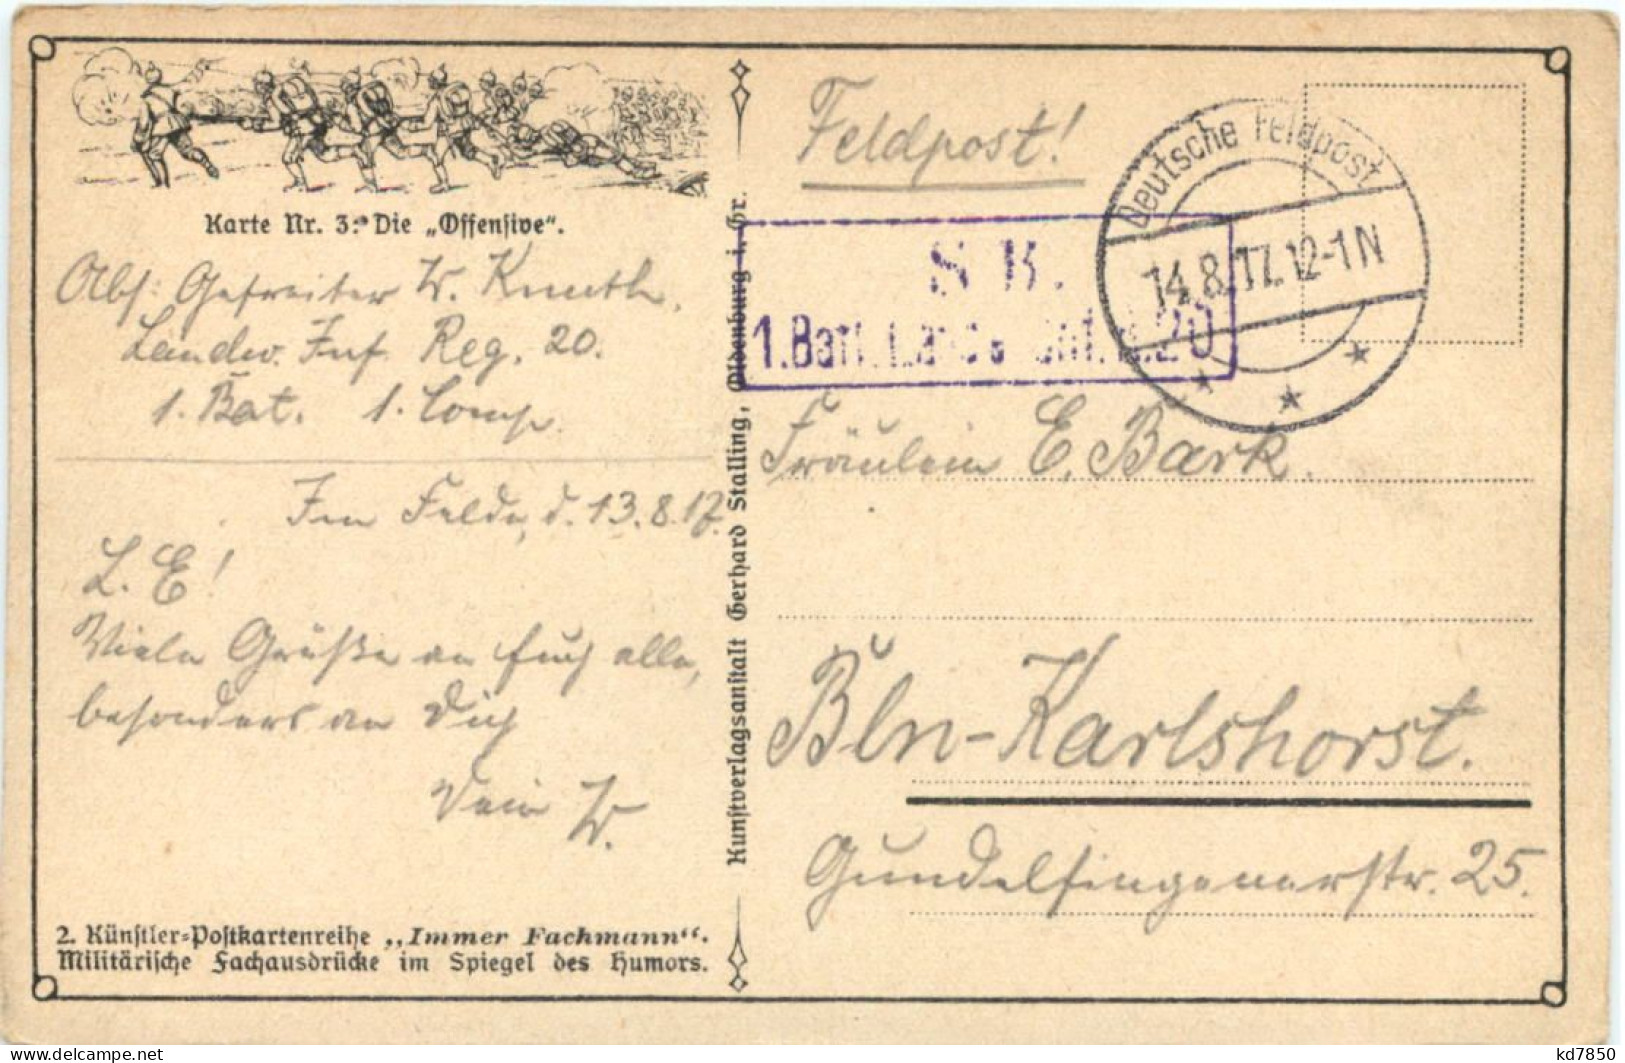 Karte Nr. 3: Die „Offensive“.
Abs: Gefreiter W. Knuth.
Landw. Inf. Reg. 20.
1. Bat. 1. Comp.
Im Felde, d. 13.8.17.
L. E!
Viele Grüße an Euch alle,
besonders an Dich
Dein W.
2. Künstler-Postkartenreihe „Immer Fachmann“.
Militärische Fachausdrücke im Spiegel des Humors.
Kunstverlagsanstalt Gerhard Stalling, Oldenburg i. Gr.
Feldpost!
Deutsche Feldpost
14.8.17.12-1N
S.B.
1.Batl.
Fräulein E. Bark.
Bln-Karlshorst.
Gundelfingenerstr. 25.
kd7850